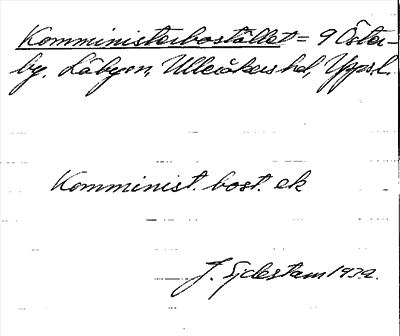 Komministerbostället = 9 Öster-
by, Läby sn, Ulleråkers hd, Uppsl.
Komminist. bost. ek
J. Sjelestam 1932.